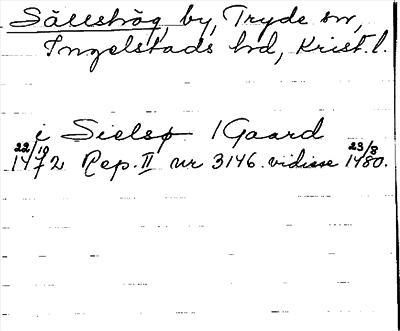 Sällshög, by, Tryde sn,
Ingelstads hd, Krist. l.
i Sielsø 1 Gaard
22/10 1472 Rep. II nr 3146. vidisse 23/8 1480.